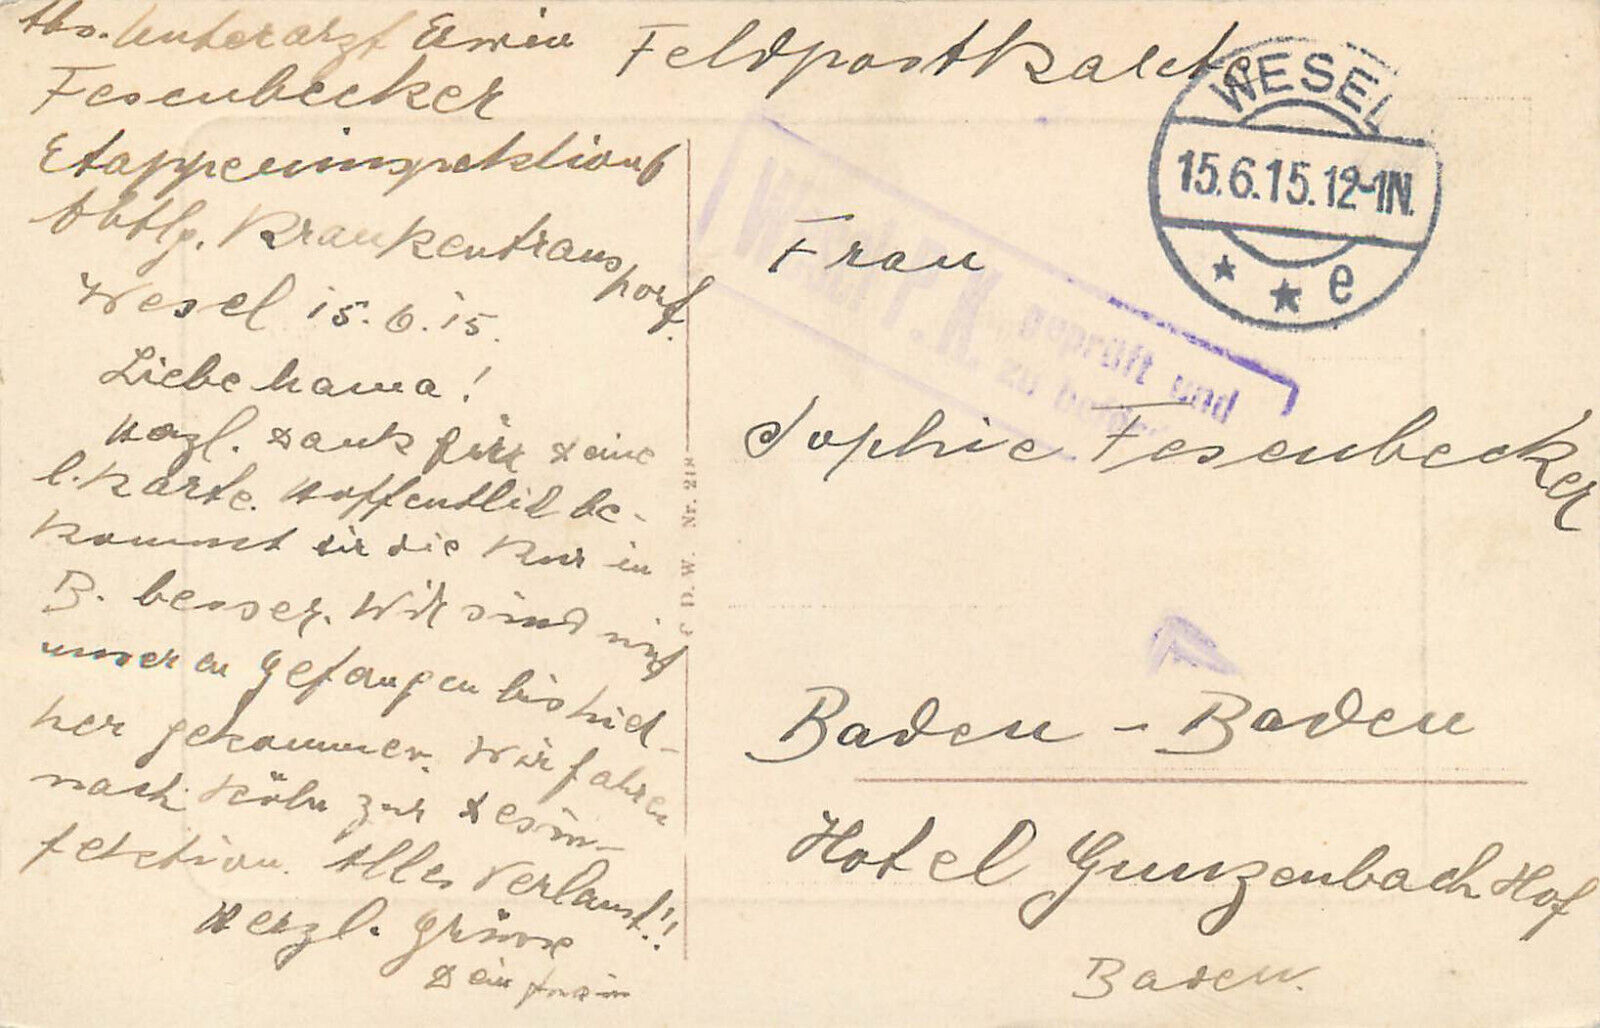 Abs. Unterarzt Erwin
Fesenbecker
Etappeninspektion 6
Abtlg. Krankentrans
port.
Wesel 15.6.15.
Liebe Mama!
Herzl. Dank für Deine
l. Karte. Hoffentlich be-
kommt dir die Kur in
B. besser. Wir sind mit
unseren Gefangen bis hier-
her gekommen. Wir fahren
nach Köln zur Desin-
fektion. Alles verlaust!!
Herzl. Grüsse
Dein Erwin
C D.W. Nr. 218
Feldpostkarte
WESEL
15.6.15.12-1N.
* * e
Wesel P.K.
geprüft und
zu
Frau
Sophie Fesenbecker
Baden-Baden
Hotel Gunzenbach Hof
Baden.